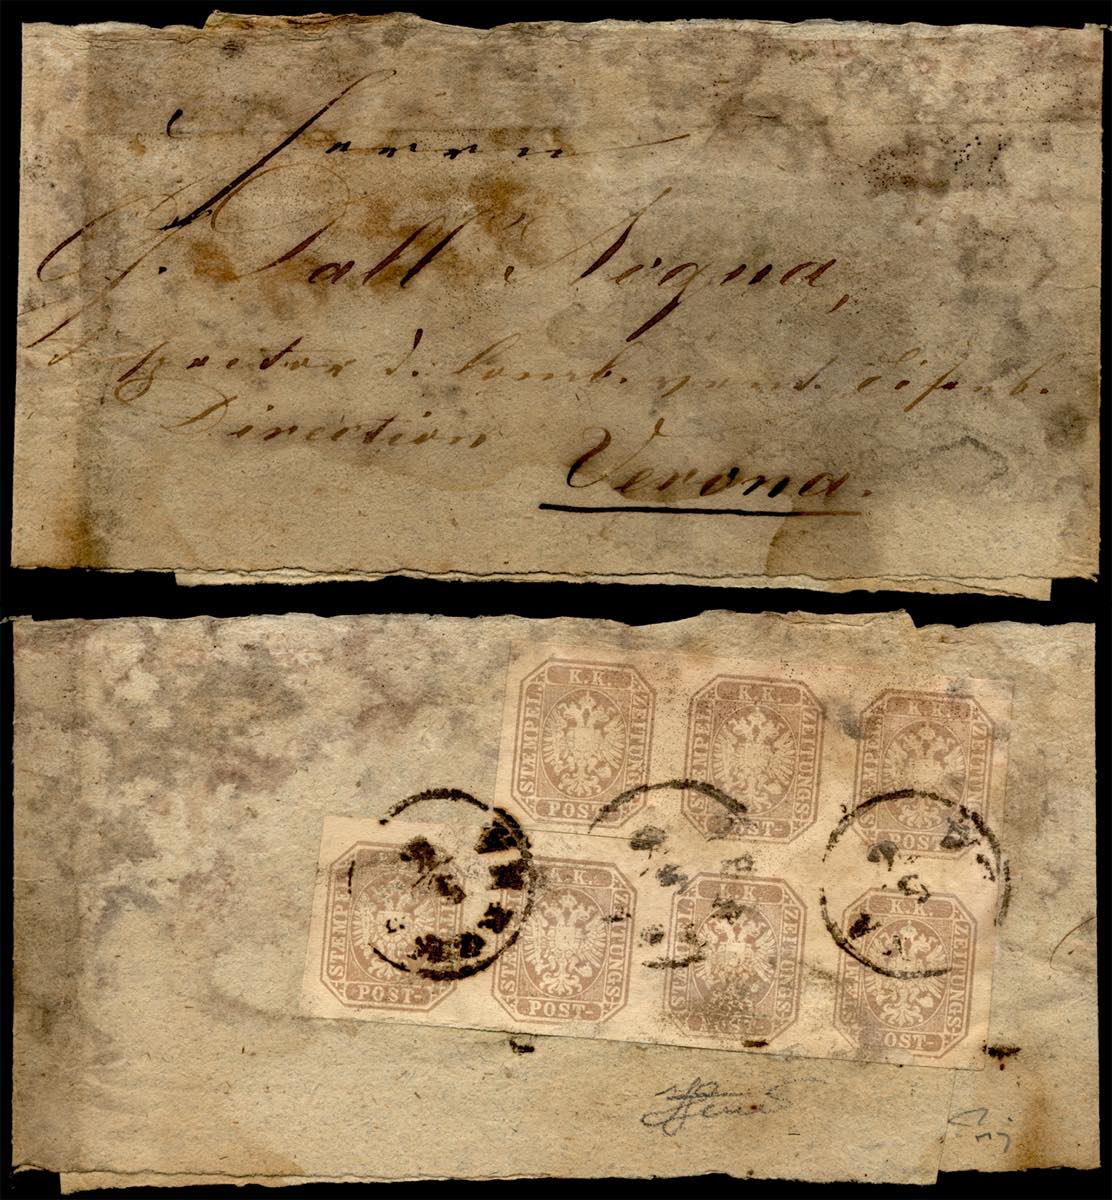 Herrn
J. Dall' Aigna,
Inspector d. lomb. venet. Eisenb.
Direction
Verona.
K.K. ZEITUNGS- POST- STEMPEL.
K.K. ZEITUNGS- POST- STEMPEL.
K.K. ZEITUNGS- POST- STEMPEL.
K.K. ZEITUNGS- POST- STEMPEL.
K.K. ZEITUNGS- POST- STEMPEL.
K.K. ZEITUNGS- POST- STEMPEL.
K.K. ZEITUNGS- POST- STEMPEL.